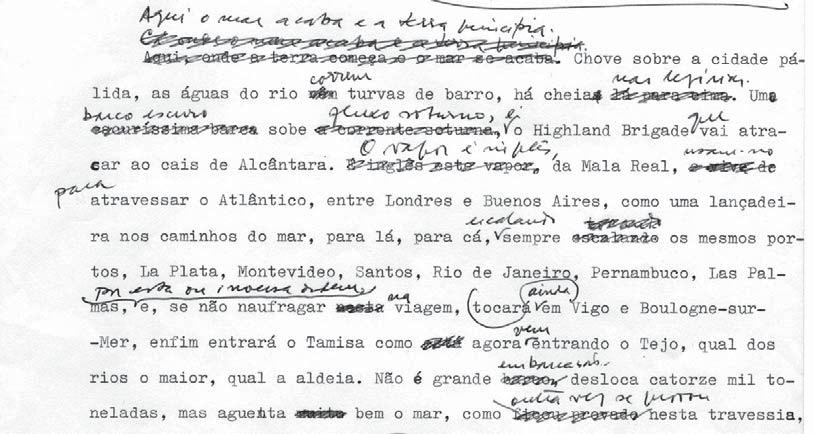 Aqui o mar acaba e a terra principia.
Aqui, onde a terra começa e o mar se acaba. Chove sobre a cidade pá-
correm nas lezírias.
lida, as águas do rio vêm turvas de barro, há cheias lá para cima. Um
barco escuro fluxo soturno, é que
escuríssima barca sobe a corrente soturna, o Highland Brigade vai atra-
O vapor é inglês, usam-no
car ao cais de Alcântara. É inglês este vapor, da Mala Real, e serve de
para
atravessar o Atlântico, entre Londres e Buenos Aires, como uma lançadei-
escalando
ra nos caminhos do mar, para lá, para cá, sempre escalando os mesmos por-
tos, La Plata, Montevideo, Santos, Rio de Janeiro, Pernambuco, Las Pal-
por esta ou inversa ordem na ainda
mas, e, se não naufragar nesta viagem, tocará em Vigo e Boulogne-sur-
vem
-Mer, enfim entrará o Tamisa como agora entrando o Tejo, qual dos
embarcação
rios o maior, qual a aldeia. Não é grande barco, desloca catorze mil to-
outra vez se provou
neladas, mas aguenta muito bem o mar, como ficou provado nesta travessia,